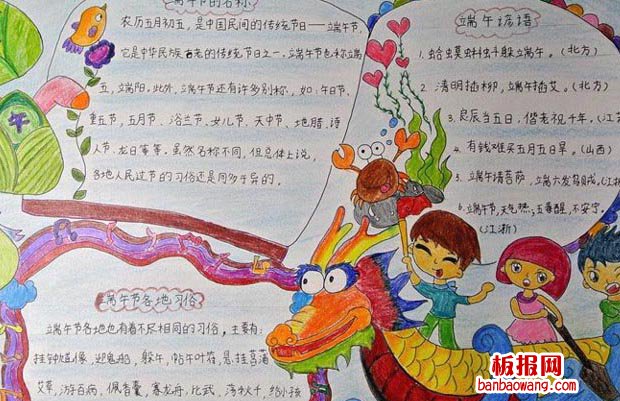 端午节的名称
农历五月初五，是中国民间的传统节日——端午节，
它是中华民族古老的传统节日之一。端午节也称端
五，端阳。此外，端午节还有许多别称，如：午日节、
重五节，五月节、浴兰节、女儿节、天中节、地腊、诗
人节、龙日等等。虽然名称不同，但总体上说，
各地人民过节的习俗还是同多于异的。
端午谚语
1. 蛤蟆蝌蚪躲端午。（北方）
2. 清明插柳，端午插艾。（北方）
3. 良辰当五日，偕老祝千年。（江苏
4. 有钱难买五月五日旱。（山西）
5. 端午请菩萨，端六发乌贼。（江浙
6. 端午节，天气热；五毒醒，不安宁。
（江浙）
午
端午节各地习俗
端午节各地也有着不尽相同的习俗，主要有：
挂钟馗像，迎鬼船，躲午，帖午叶符，悬挂菖蒲
艾草，游百病，佩香囊，赛龙舟，比武，荡秋千，给小孩
板报网
banbaowang.com